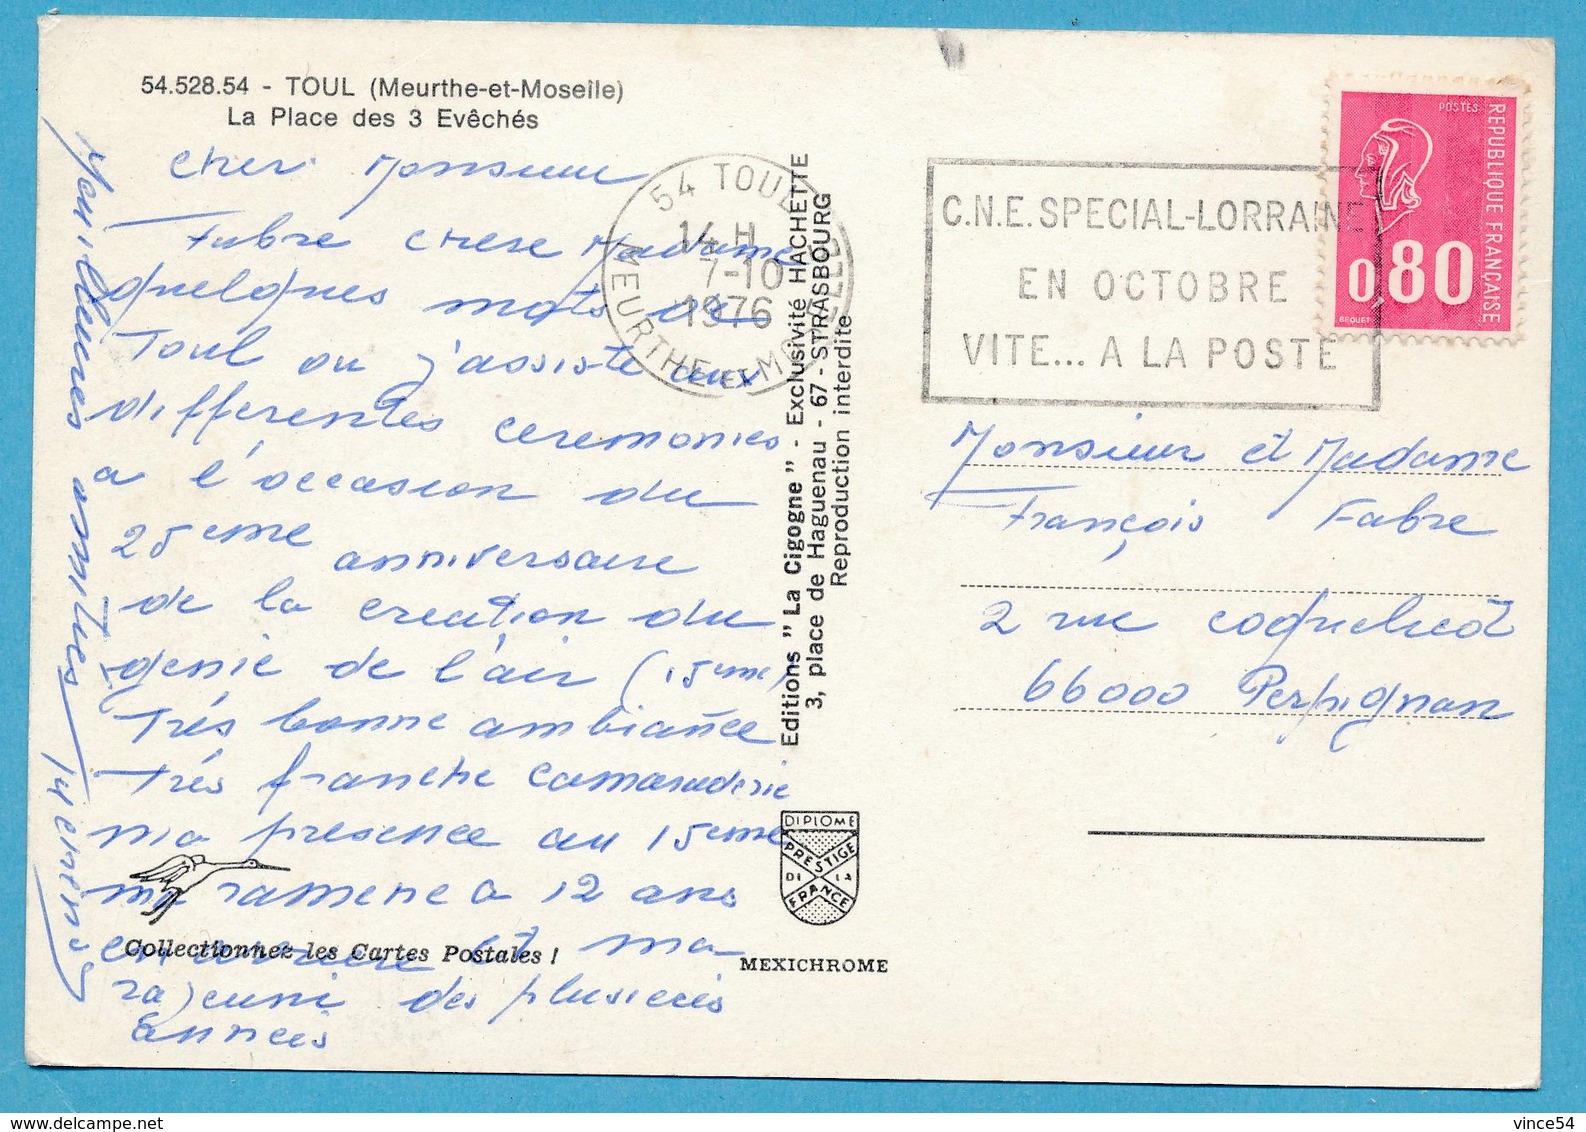 54.528.54 - TOUL (Meurthe-et-Moselle)
La Place des 3 Evêchés
Cher Monsieur
Fabre chere Madame
quelques mots de
Toul ou j'assiste aux
differentes ceremonies
a l'occasion du
25eme anniversaire
de la creation du
genie de l'air (15eme)
Trés bonne ambiance
trés franche camaraderie
ma presence au 15eme
ma ramene a 12 ans
en arriere et ma
rajeuni des plusieurs
années
Meuilleures amities
54 TOUL
14 H
7-10
1976
MEURTHE ET MOSELLE
Editions "La Cigogne" - Exclusivité HACHETTE
3, place de Haguenau - 67 - STRASBOURG
Reproduction interdite
C.N.E. SPECIAL-LORRAINE
EN OCTOBRE
VITE... A LA POSTE
POSTES
REPUBLIQUE FRANÇAISE
0,80
BEQUET
Monsieur et Madame
François Fabre
2 rue coquelicot
66000 Perpignan
DIPLOME
PRESTIGE
DE LA
FRANCE
Collectionnez les Cartes Postales !
MEXICHROME
delcampe.net
vince54